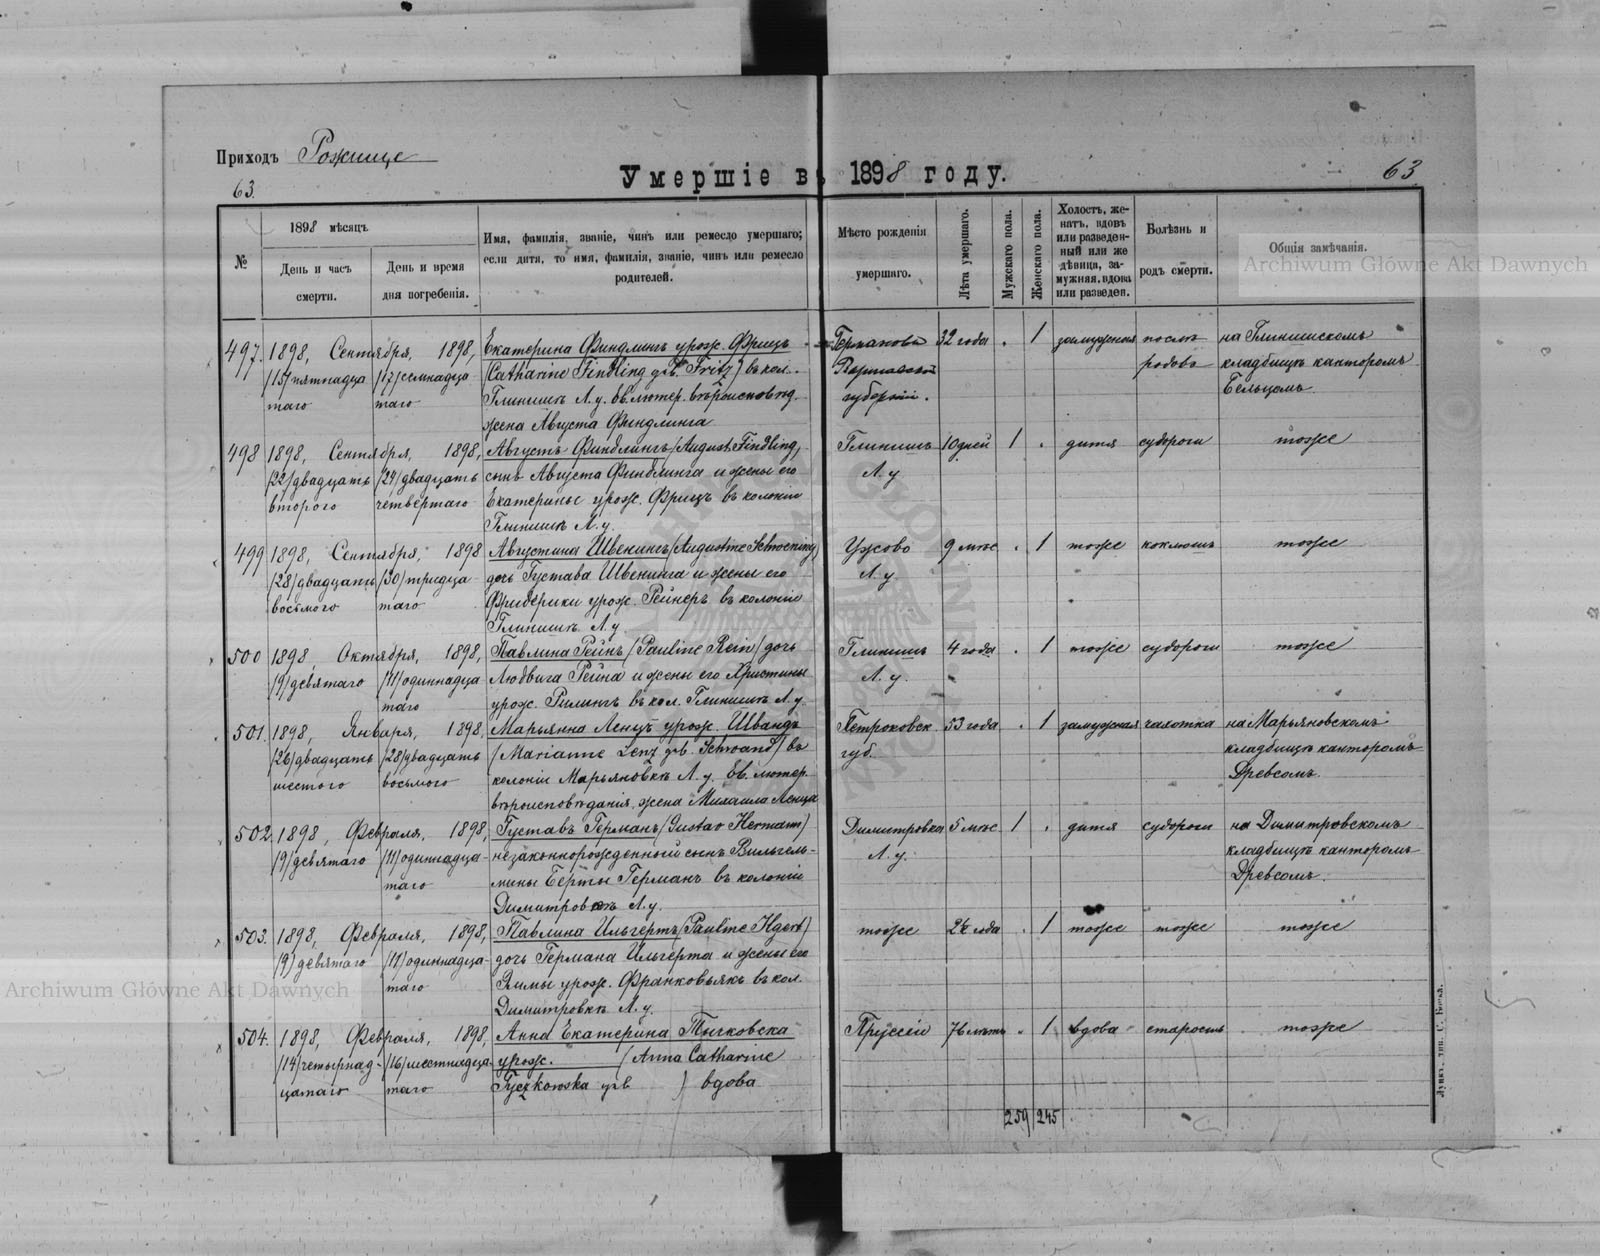 Приходъ Рожище
63.
Умершіе въ 1898 году.
63
№
1898 мѣсяцъ
День и часъ смерти.
День и время дня погребенія.
Имя, фамилія, званіе, чинъ или ремесло умершаго;
если дитя, то имя, фамилія, званіе, чинъ или ремесло
родителей.
Мѣсто рожденія
умершаго.
Лѣта умершаго.
Мужскаго пола.
Женскаго пола.
Холостъ, же-
натъ, вдовъ
или разведен-
ный или же
дѣвица, за-
мужняя, вдова
или разведен.
Болѣзнь и
родъ смерти.
Общія замѣчанія.
Archiwum Główne Akt Dawnych
497. 1898, Сентября, 1898, Екатерина Финдлингъ урож. Фрицъ 32 года . 1 замужняя послѣ на Глинишскомъ
/15/ пятнадца /17/ семнадца /Catharine Findling geb. Fritz/ въ кол. родовъ кладбищѣ канторомъ
таго таго Глинишѣ Л. у. ев. лютер. вѣроисповѣд. губерніи. Бельцомъ.
жена Августа Финдлинга
498 1898, Сентября, 1898, Августъ Финдлингъ /August Findling/ Глинишъ 10 дней 1 . дитя судороги тоже
/22/ двадцать /24/ двадцать сынъ Августа Финдлинга и жены его Л. у.
второго четвертаго Екатерины урож. Фрицъ въ колоніи
Глинишѣ Л. у.
499 1898, Сентября, 1898 Августина Швенингъ /Augustine Schwening/ Ужово 9 мѣс . 1 тоже коклюшъ тоже
/28/ двадцать /30/ тридца- дочь Густава Швенинга и жены его Л. у.
восьмого таго Фридерики урож. Рейнеръ въ колоніи
Глинишѣ Л. у.
500 1898, Октября, 1898, Павлина Рейнъ /Pauline Rein/ дочь Глинишъ 4 года . 1 тоже судороги тоже
/9/ девятаго /11/ одиннадца Людвига Рейна и жены его Христины Л. у.
таго урож. Рилингъ въ кол. Глинишѣ Л. у.
501. 1898, Января, 1898, Марьянна Ленцъ урож. Швандъ Петроковск 53 года . 1 замужняя чахотка на Марьяновскомъ
/26/ двадцать /28/ двадцать /Marianne Lenz geb. Schwand/ въ губ. кладбищѣ канторомъ
шестого восьмого колоніи Марьяновкѣ Л. у. ев. лютер. Древсомъ.
вѣроисповѣданія, жена Михаила Ленца
502. 1898, Февраля, 1898, Густавъ Германъ /Gustav Hermann/ Димитровка 5 мѣс. 1 . дитя судороги на Димитровскомъ
/9/ девятаго /11/ одиннадца- незаконнорожденный сынъ Вильгель- Л. у. кладбищѣ канторомъ
таго мины Берты Германъ въ колоніи Древсомъ.
Димитровкѣ Л. у.
503. 1898, Февраля, 1898, Павлина Ильгертъ /Pauline Ilgert/ тоже года . 1 тоже тоже тоже
/9/ девятаго /11/ одиннадца- дочь Германа Ильгерта и жены его
таго урож. Франковьякъ въ кол.
Димитровкѣ Л. у.
504. 1898, Февраля, 1898, Анна Екатерина Тычковска Пруссіи 76 лѣтъ . 1 вдова старость тоже
/14/ четырнад- /16/ шестнадца урож. /Anna Catharine
цатаго таго Tyczkowska geb / вдова
259 245
Archiwum Główne Akt Dawnych